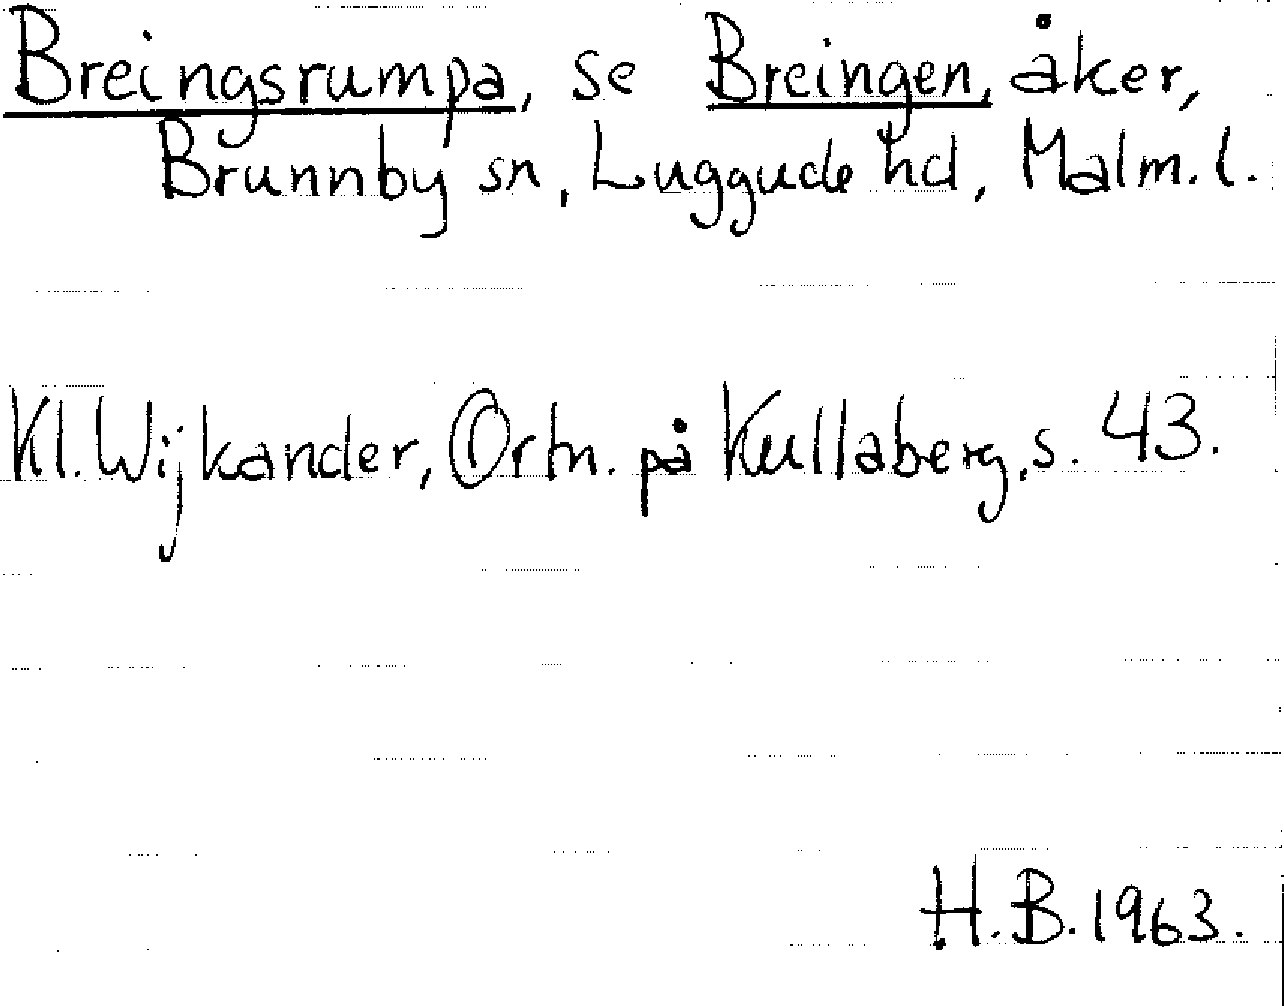 Breingsrumpa, se Breingen, åker,
Brunnby sn, Luggude hd, Malm. l.
Kl. Wijkander, Ortn. på Kullaberg, s. 43.
H. B. 1963.